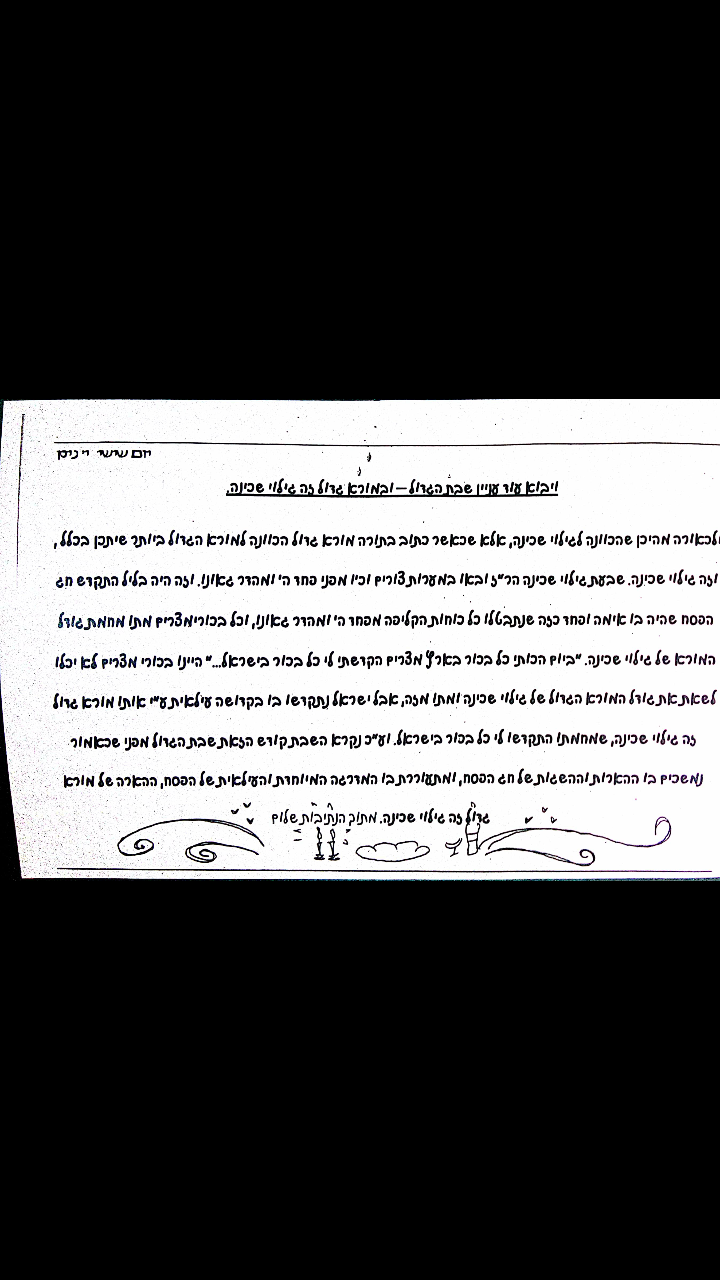 יום שישי י' ניסן
ויבוא עוד עניין שבת הגדול – ובמורא גדול זה גילוי שכינה.
ולכאורה מהיכן שהכוונה לגילוי שכינה, אלא שכאשר כתוב בתורה מורא גדול הכוונה למורא הגדול ביותר שיתכן בכלל,
וזה גילוי שכינה. שבעת גילוי שכינה הר"ז ובאו במערות צורים וכו' מפני פחד ה' ומהדר גאונו. וזה היה בליל התקדש חג
הפסח שהיה בו אימה ופחד כזה שנתבטלו כל כוחות הקליפה מפחד ה' ומהדר גאונו, וכל בכורי מצרים מתו מחמת גודל
המורא של גילוי שכינה. "ביום הכותי כל בכור בארץ מצרים הקדשתי לי כל בכור בישראל..." היינו בכורי מצרים לא יכלו
לשאת את גודל המורא הגדול של גילוי שכינה ומתו מזה, אבל ישראל נתקדשו בו בקדושה עילאית ע"י אותו מורא גדול
זה גילוי שכינה, שמחמתו התקדשו לי כל בכור בישראל. וע"כ נקרא השבת קודש הזאת שבת הגדול מפני שכאמור
נמשכים בו ההארות וההשגות של חג הפסח, ומתעוררת בו המדרגה המיוחדת והעילאית של הפסח, ההארה של מורא
גדול זה גילוי שכינה. מתוך הנתיבות שלום